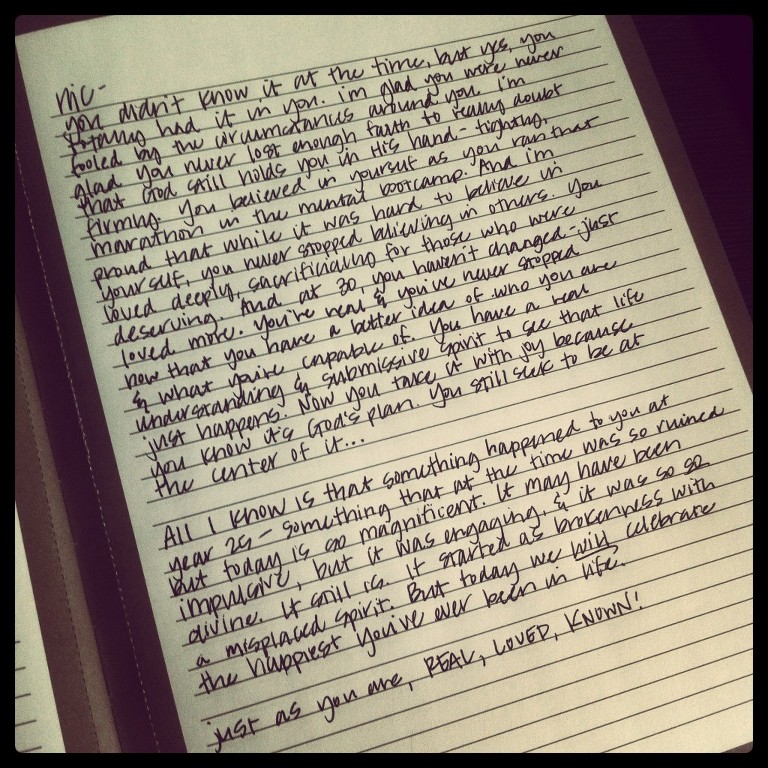 Nic-
you didn't know it at the time, but yes, you
totally had it in you. I'm glad you were never
fooled by the circumstances around you. I'm
glad you never lost enough faith to really doubt
that God still holds you in His hand - tightly,
firmly. You believed in yourself as you ran that
marathon in the mental bootcamp. And I'm
proud that while it was hard to believe in
yourself, you never stopped believing in others. You
loved deeply, sacrificially for those who were
deserving. And at 30, you haven't changed - just
loved more. You're real & you've never stopped
now that you have a better idea of who you are
& what you're capable of. You have a real
understanding & submissive spirit to see that life
just happens. Now you take it with joy because
you know it's God's plan. You still seek to be at
the center of it...
All I know is that something happened to you at
year 25 - something that at the time was so ruined
but today is so magnificent. It may have been
impulsive, but it was engaging, & it was so so
divine. It still is. It started as brokenness with
a misplaced spirit. But today we will celebrate
the happiest you've ever been in life.
just as you are, REAL, LOVED, KNOWN!